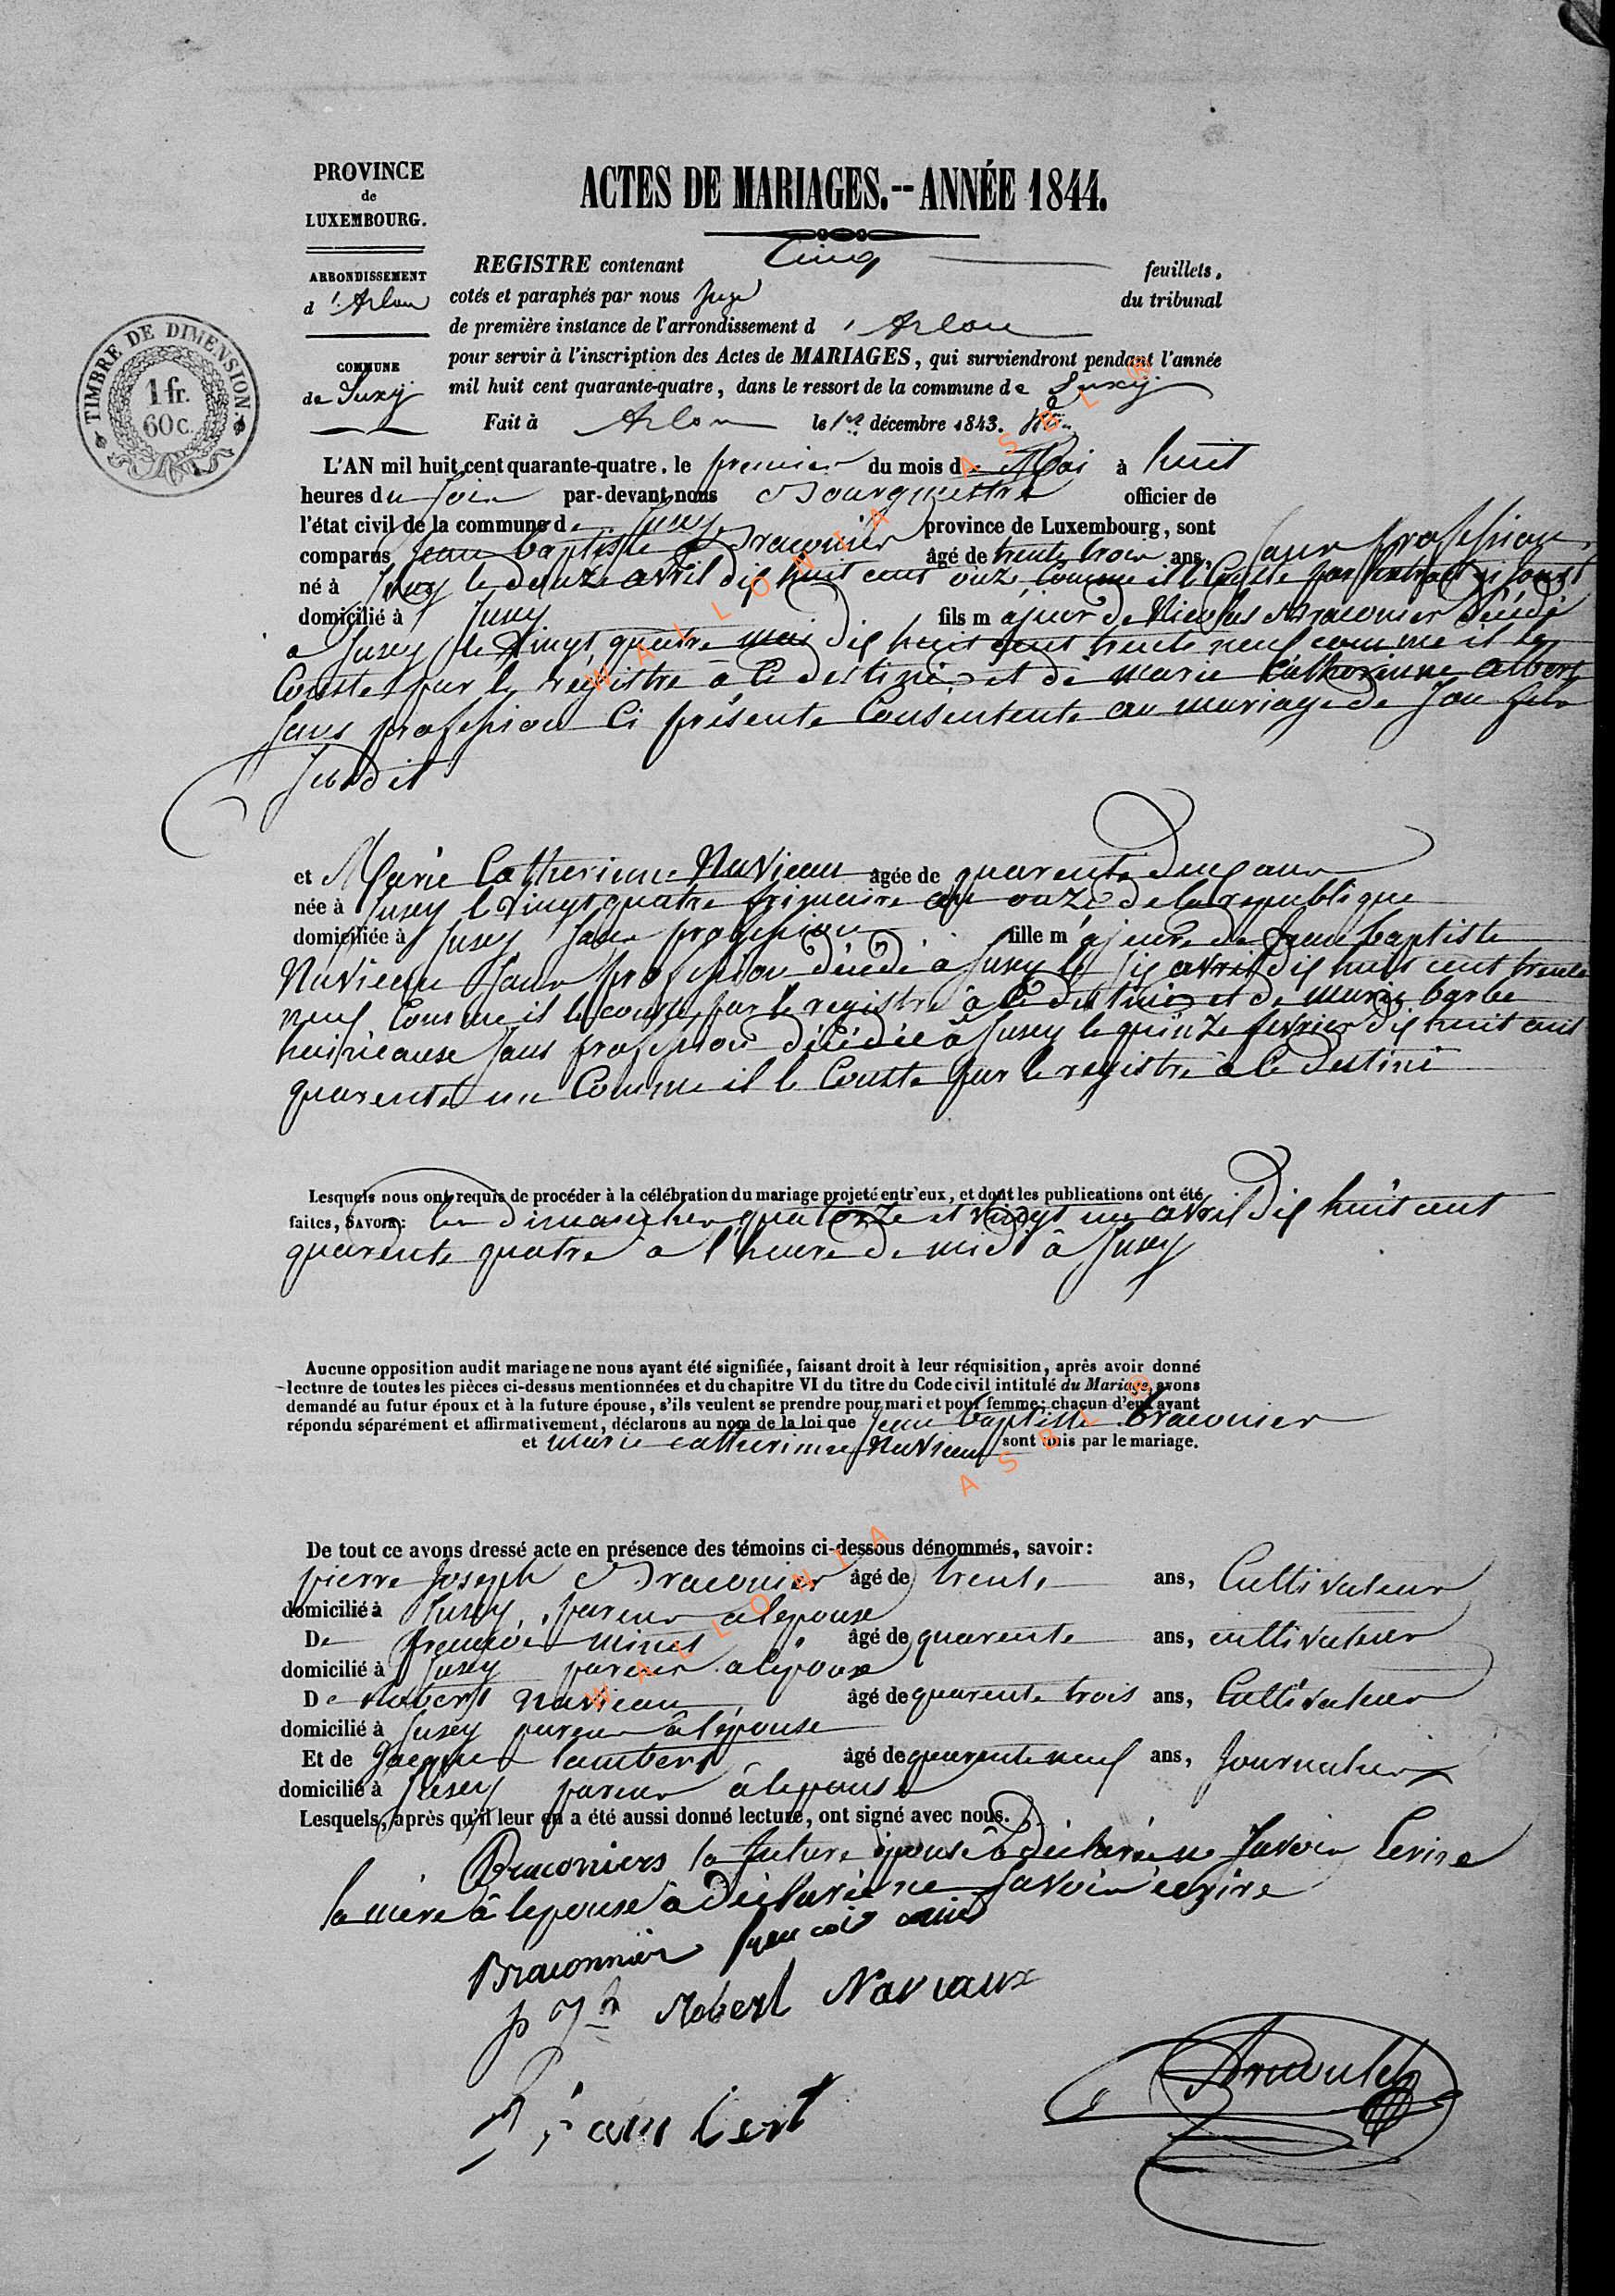 PROVINCE
de
LUXEMBOURG.
ACTES DE MARIAGES.-- ANNÉE 1844.
ARRONDISSEMENT
d'Arlon
COMMUNE
de Suxy
TIMBRE DE DIMENSION.
1 fr.
60 c.
REGISTRE contenant Cinq feuillets.
cotés et paraphés par nous Juge du tribunal
de première instance de l'arrondissement d'Arlon
pour servir à l'inscription des Actes de MARIAGES, qui surviendront pendant l'année
mil huit cent quarante-quatre, dans le ressort de la commune de Suxy
Fait à Arlon le 1er décembre 1843.
L'AN mil huit cent quarante-quatre, le premier du mois de Mai à huit
heures du soir par-devant nous Bourgmestre officier de
l'état civil de la commune de Suxy province de Luxembourg, sont
comparus Jean baptiste Braconier âgé de trente trois ans, sans profession
né à Suxy le douze avril dix huit cent onze comme il le Conste par l'extrait ci joint
domicilié à Suxy fils majeur de Nicolas Braconier décédé
a Suxy le vingt quatre mai dix huit cent trente neuf comme il le
Conste par le régistre à ce destiné et de marie Catherinne albert
sans profession Ci présente Consentente au mariage de son fils
susdit
et Marie Catherinne Navieau âgée de quarente deux ans
née à Suxy le vingt quatre frimaire an onze de la republique
domiciliée à Suxy sans profession fille majeure de Jean baptiste
Navieau sans profession décédé à Suxy le six avril dix huit cent trente
neuf Comme il le conste par le registre à ce destiné et de marie barbe
sans profession décédée à Suxy le quinze fevrier dix huit cent
quarente un Comme il le Conste par le registre à ce destiné
Lesquels nous ont requis de procéder à la célébration du mariage projeté entr'eux, et dont les publications ont été
faites, SAVOIR: les dimanches quatorze et vingt un avril dix huit cent
quarente quatre a l'heure de midi à Suxy
Aucune opposition audit mariage ne nous ayant été signifiée, faisant droit à leur réquisition, après avoir donné
lecture de toutes les pièces ci-dessus mentionnées et du chapitre VI du titre du Code civil intitulé du Mariage, avons
demandé au futur époux et à la future épouse, s'ils veulent se prendre pour mari et pour femme; chacun d'eux ayant
répondu séparément et affirmativement, déclarons au nom de la loi que Jean baptiste braconier
et marie catherinne Navieau sont unis par le mariage.
De tout ce avons dressé acte en présence des témoins ci-dessous dénommés, savoir:
pierre Joseph Braconier âgé de trente ans, Cultivateur
domicilié à Suxy, parens a lepouse
De françois minet âgé de quarente ans, cultivateur
domicilié à Suxy parens a lépouse
De Robert Navieau âgé de quarente trois ans, Cultivateur
domicilié à Suxy parens à lépouse
Et de Jacques lambert âgé de quarente neuf ans, Journalier
domicilié à Suxy parens à lepouse
Lesquels, après qu'il leur en a été aussi donné lecture, ont signé avec nous.
Braconiers la future épouse à déclarée ne Savoir Ecrire
la mère à lepouse à déclarée ne savoir ecrire
Braconnier
p Jh Robert Naviaux
Lambert
WALLONIA ASBL ®
WALLONIA ASBL ®